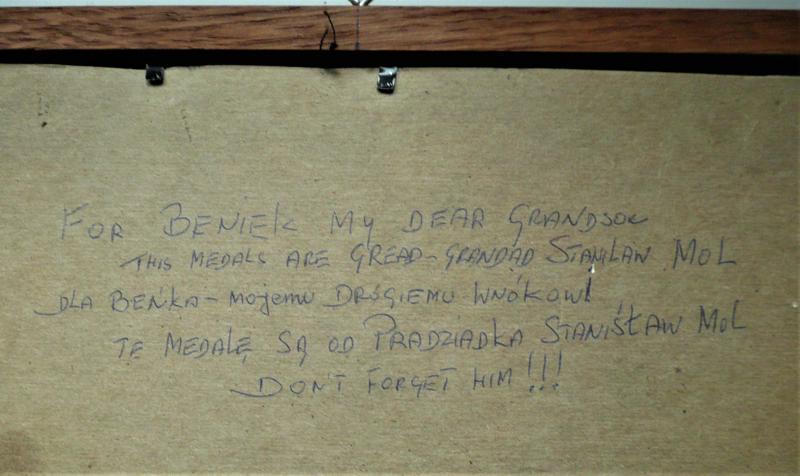 FOR BENIEK MY DEAR GRANDSON
THIS MEDALS ARE GREAD-GRANDAD STANISLAW MOL
DLA BEŃKA - MOJEMU DROGIEMU WNÓKOWI
TE MEDALE SĄ OD PRADZIADKA STANISŁAW MOL
DON'T FORGET HIM!!!